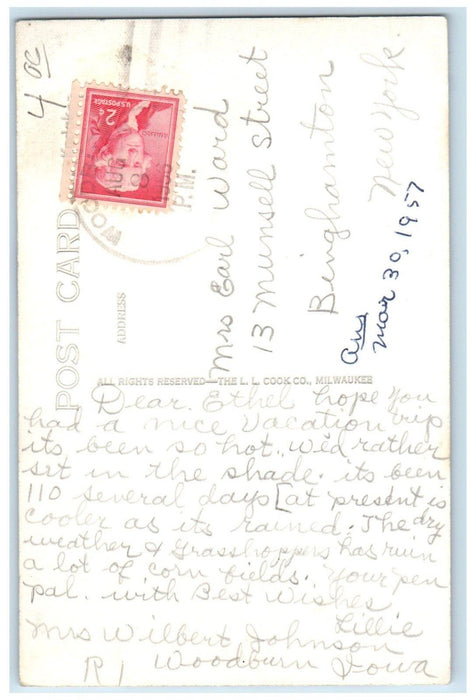 4 oc
U.S. POSTAGE
2¢
AUG
P.M.
POST CARD
ADDRESS
Mrs Earl Ward
13 Munsell Street
Binghamton
New York
Ans
Mar 30, 1957
ALL RIGHTS RESERVED—THE L. L. COOK CO., MILWAUKEE
Dear. Ethel hope you
had a nice Vacation trip
its been so hot. we'd rather
set in the shade. its been
110 several days [at present is
cooler as its rained. The dry
weather & Grasshoppers has ruin
a lot of corn fields. Your pen
pal. with Best Wishes
Lillie
Mrs Wilbert Johnson
R 1 Woodburn Iowa